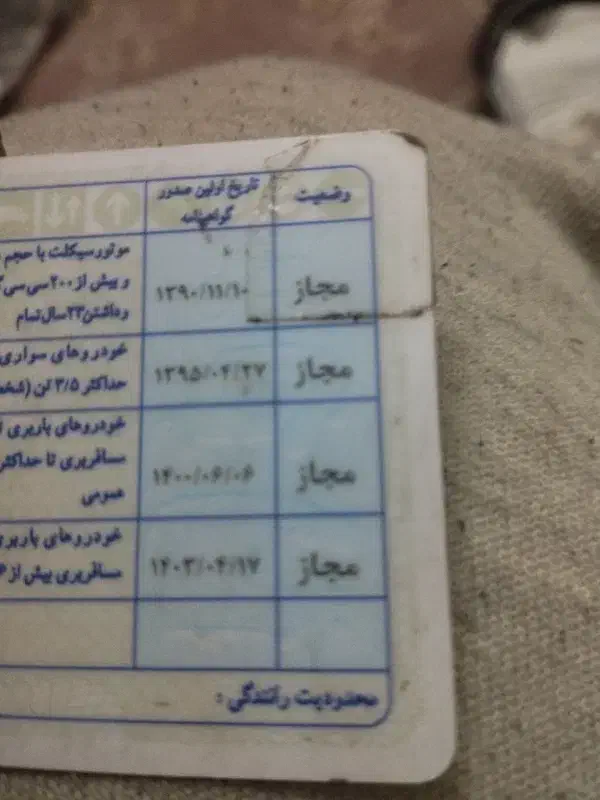 وضعیت
تاریخ اولین صدور
گواهینامه
مجاز
۱۳۹۰/۱۱/۱۰
موتورسیکلت با حجم
و بیش از ۲۰۰ سی سی
و داشتن ۲۳ سال تمام
مجاز
۱۳۹۵/۰۴/۲۷
خودروهای سواری
حداکثر ۳/۵ تن (شخ
مجاز
۱۴۰۰/۰۶/۰۶
خودروهای باربری
مسافربری تا حداکثر
عمومی
مجاز
۱۴۰۳/۰۴/۱۷
خودروهای باربری
مسافربری بیش از ۶
محدودیت رانندگی :